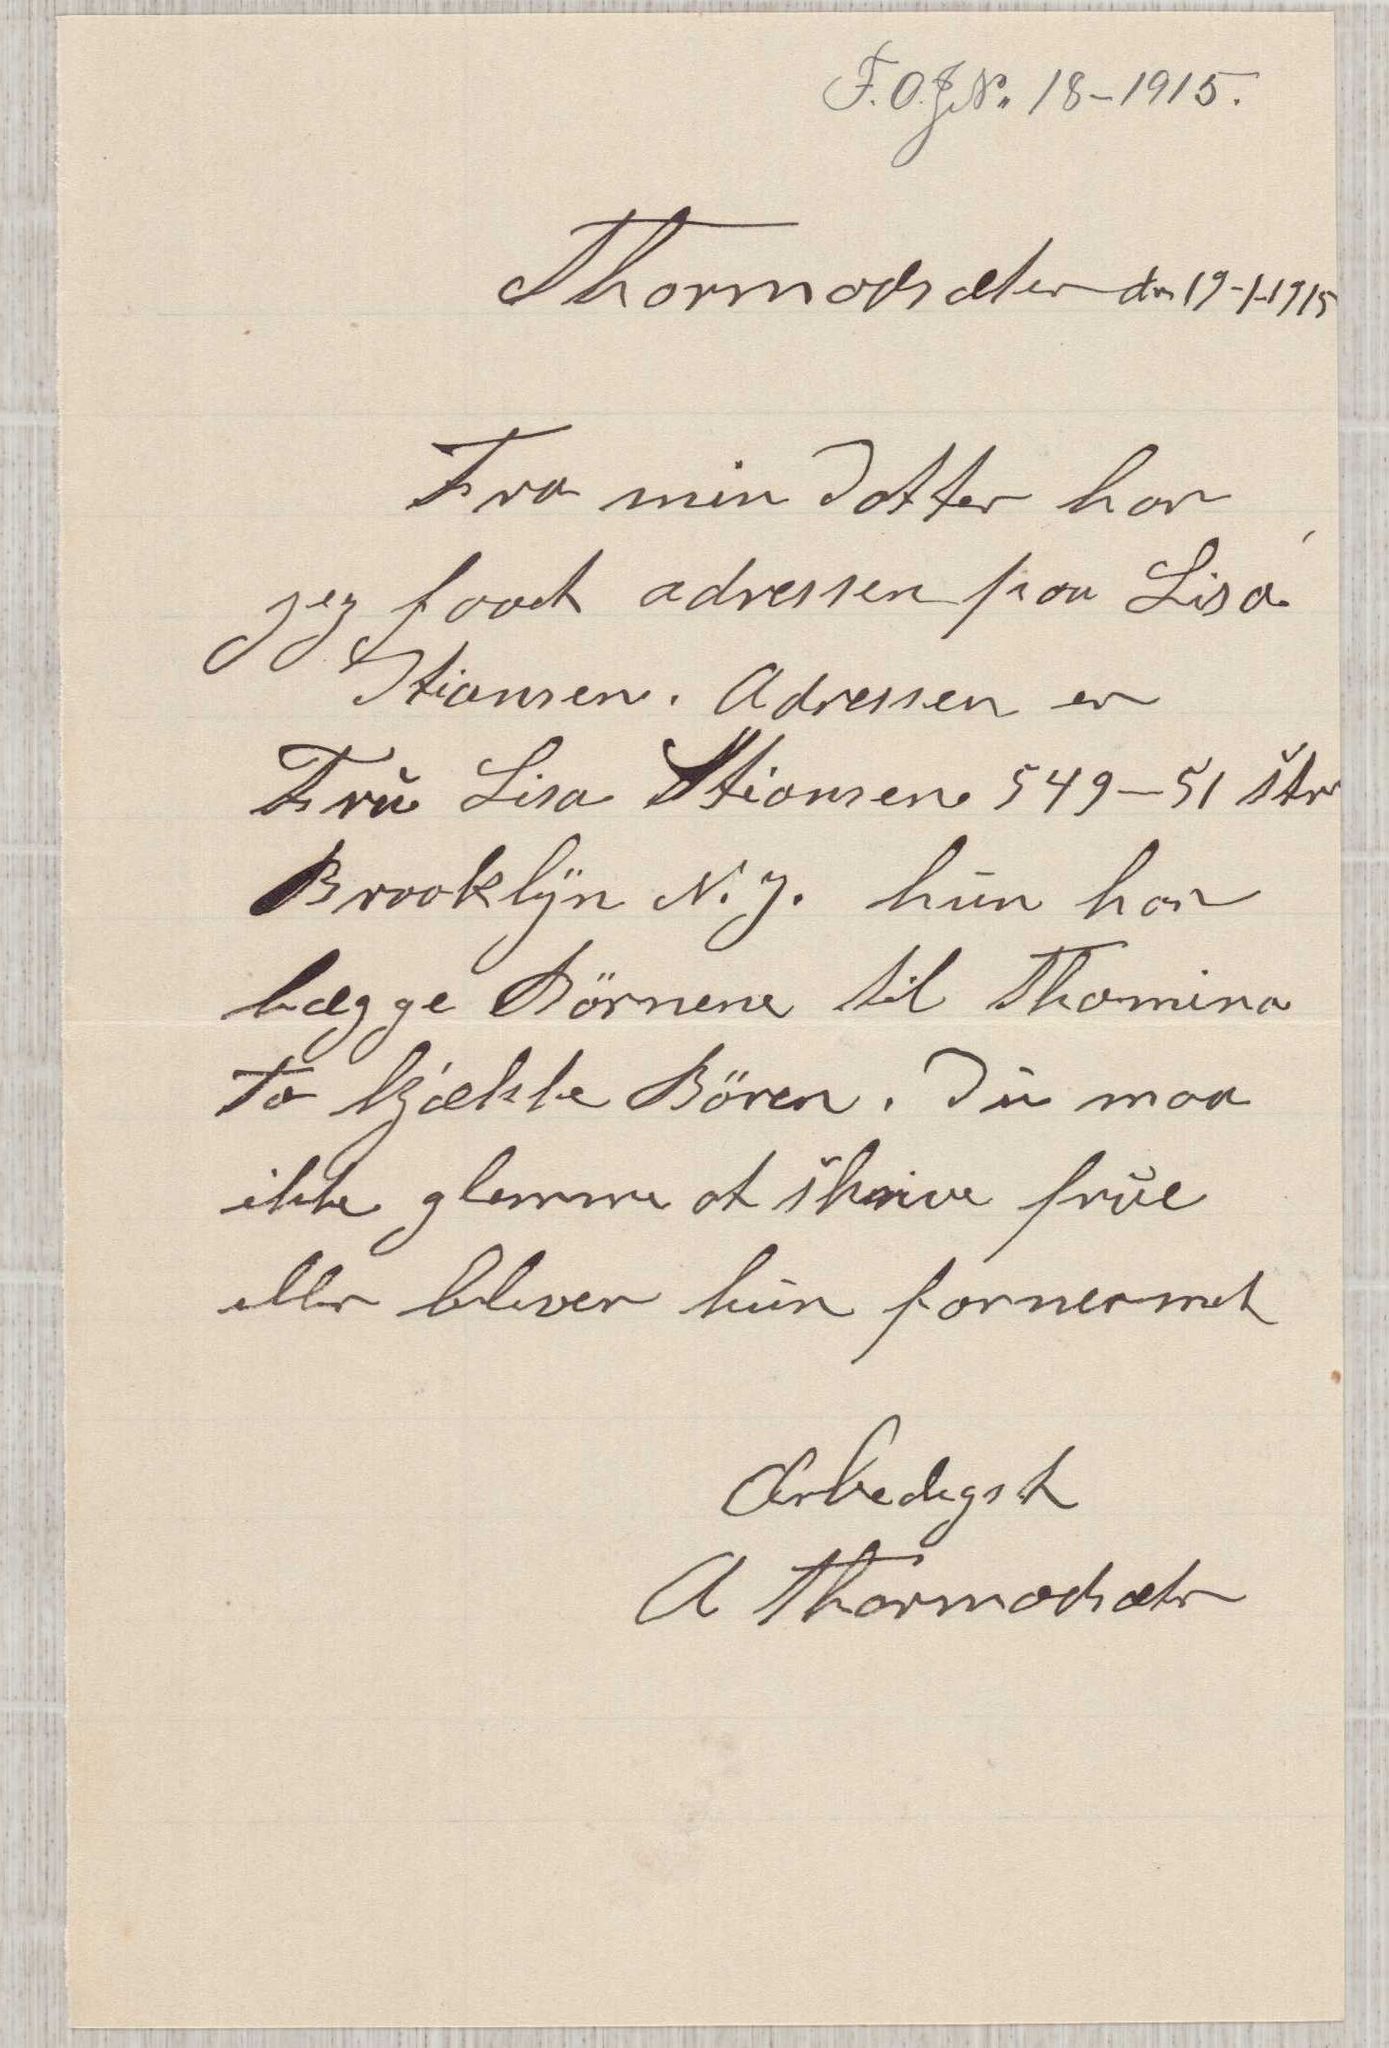 F.O.J.N. 18-1915.
Thormodsæter dn 19-1-1915
Fra min Dotter har
jeg faaet adressen paa Lisa
Stiansen. Adressen er
Fru Lisa Stiansen 549-51 Str
Brooklyn N.Y. hun har
bægge Börnene til Thomina
to kjække Bören. Du maa
ikke glemme at skrive frue
eller bliver hun fornermet
Ærbedigst
A Thormodsæter